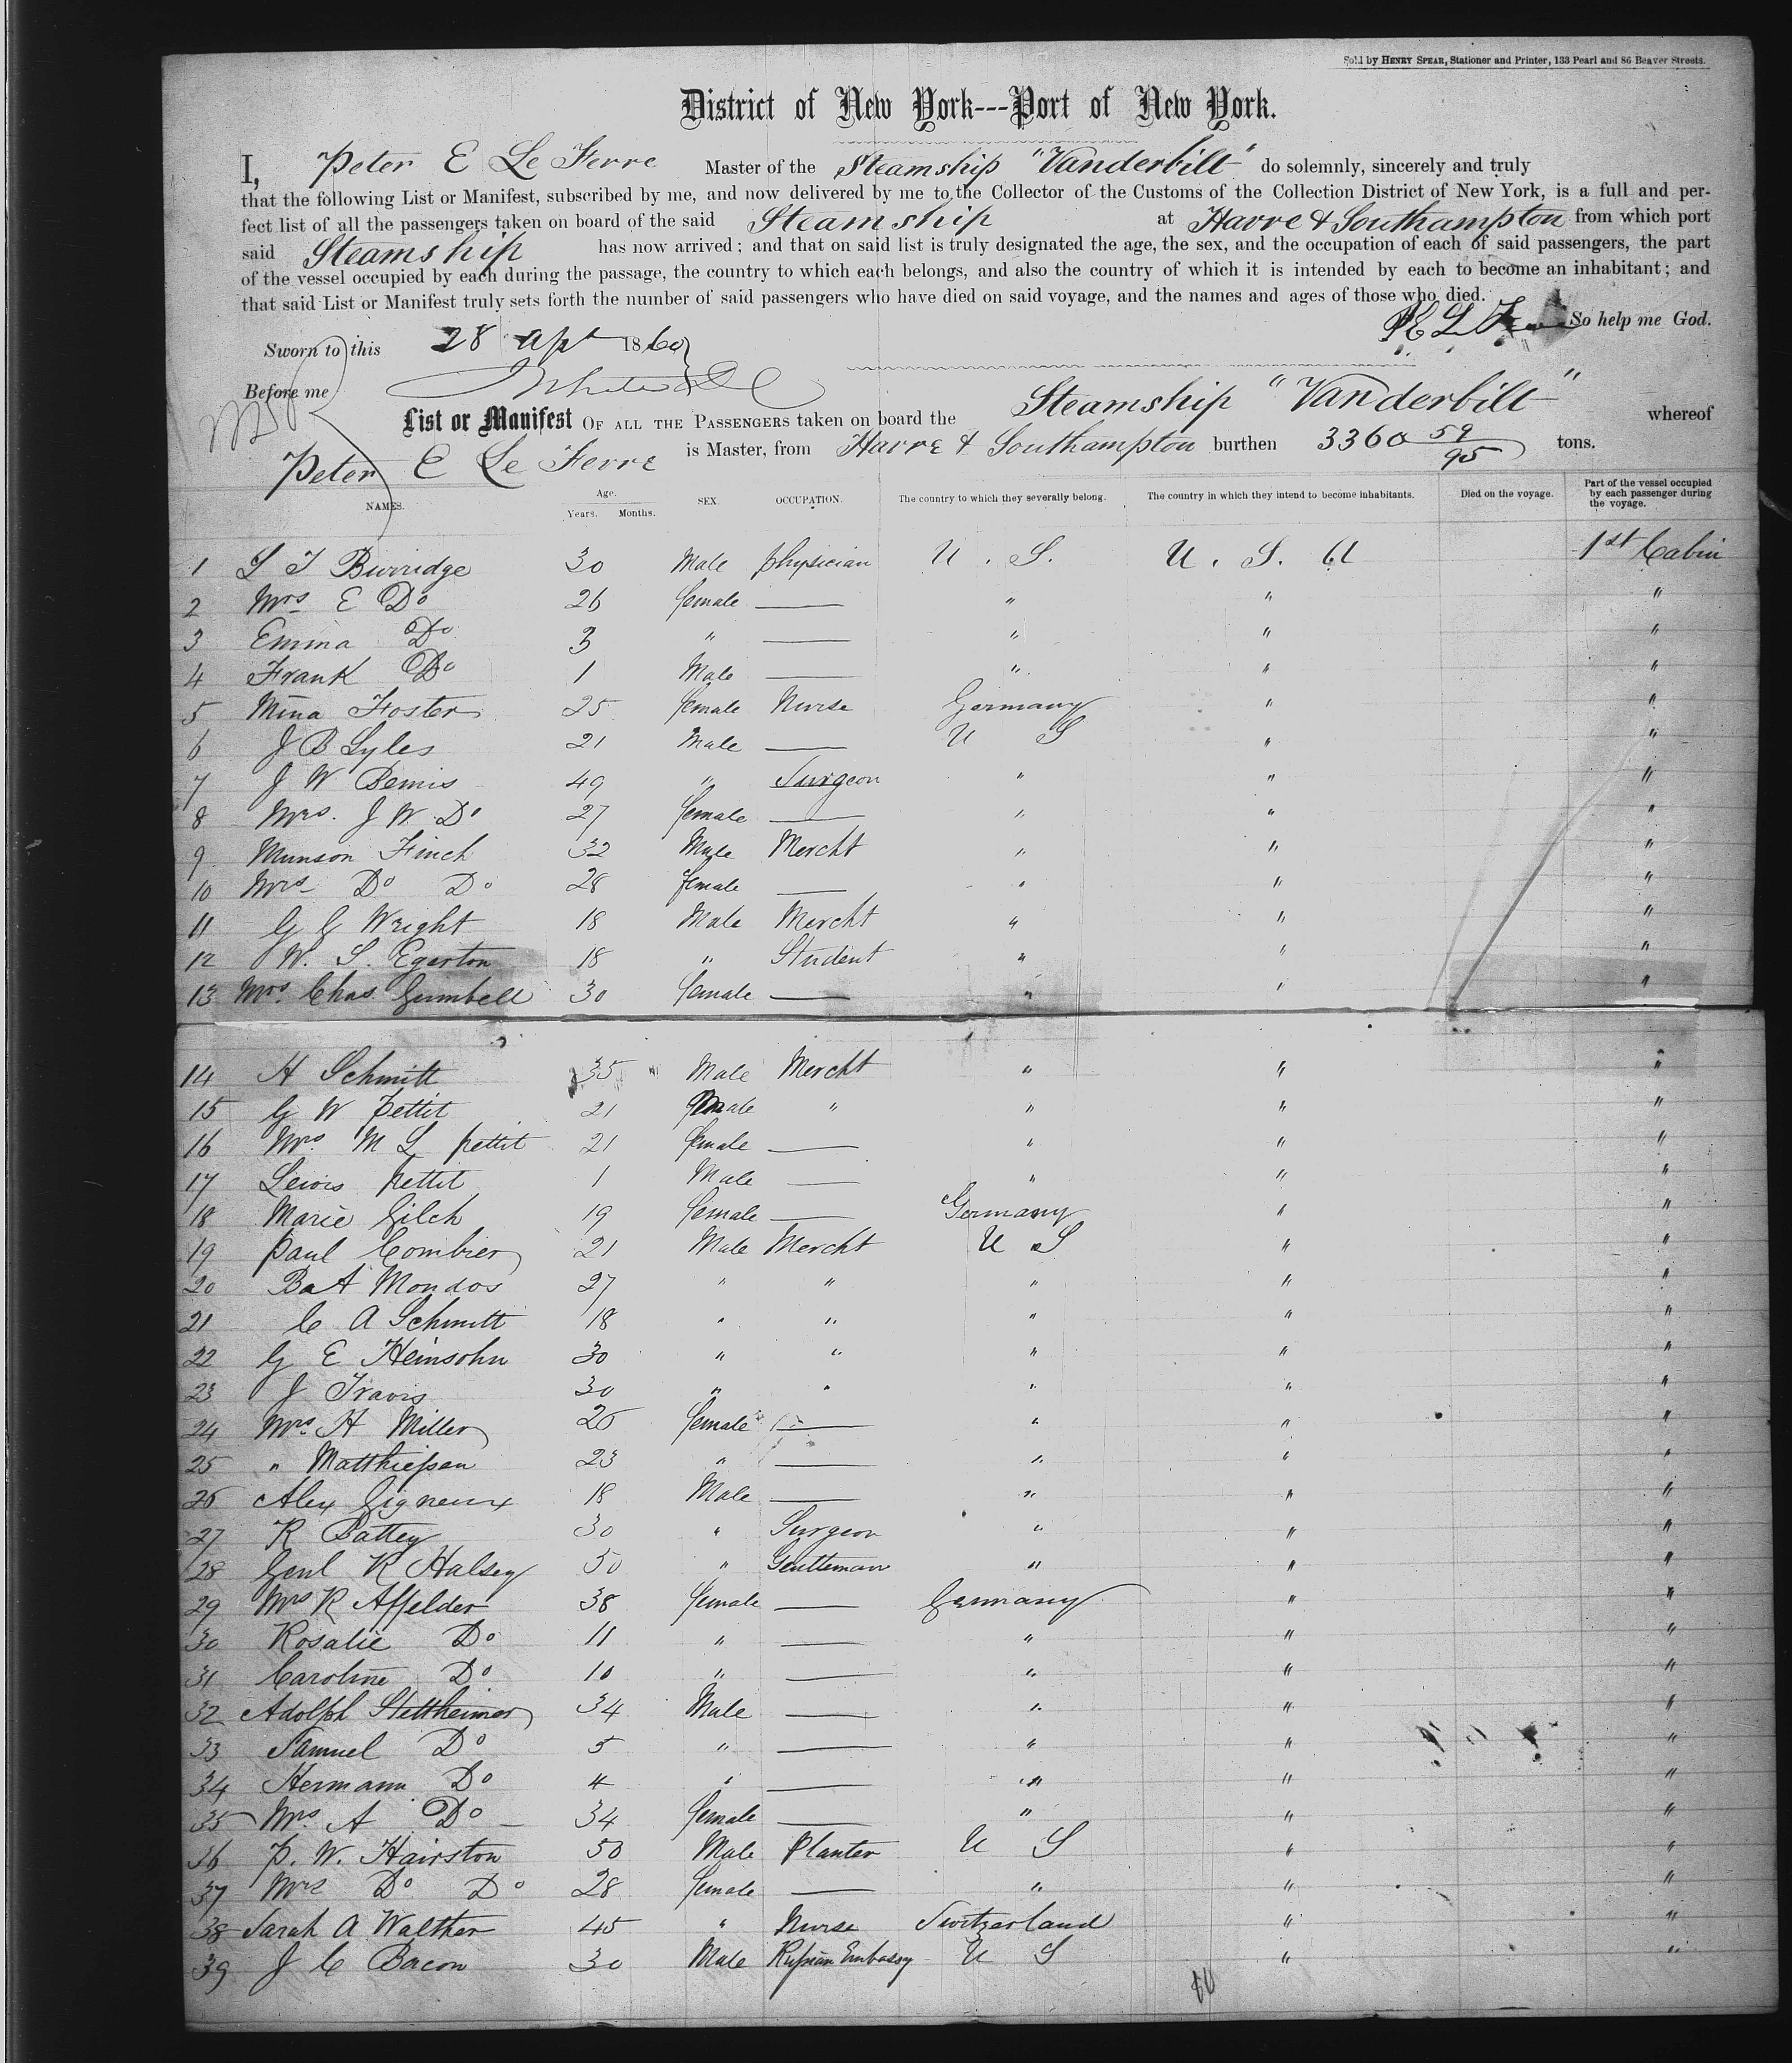 Sold by HENRY SPEAR, Stationer and Printer, 133 Pearl and 86 Beaver Streets.
District of New York---Port of New York.
I, Peter E Le Ferre Master of the Steamship "Vanderbilt" do solemnly, sincerely and truly
that the following List or Manifest, subscribed by me, and now delivered by me to the Collector of the Customs of the Collection District of New York, is a full and per-
fect list of all the passengers taken on board of the said Steamship at Havre & Southampton from which port
said Steamship has now arrived; and that on said list is truly designated the age, the sex, and the occupation of each of said passengers, the part
of the vessel occupied by each during the passage, the country to which each belongs, and also the country of which it is intended by each to become an inhabitant; and
that said List or Manifest truly sets forth the number of said passengers who have died on said voyage, and the names and ages of those who died.
P E L So help me God.
Sworn to this 28 Apr 1860
Before me
List or Manifest OF ALL THE PASSENGERS taken on board the Steamship "Vanderbilt" whereof
Peter E Le Ferre is Master, from Havre & Southampton burthen 3360 59/95 tons.
NAMES. Age. Years. Months. SEX. OCCUPATION. The country to which they severally belong. The country in which they intend to become inhabitants. Died on the voyage. Part of the vessel occupied by each passenger during the voyage.
1 S T Burridge 30 Male Physician U. S. U. S. 61 1st Cabin
2 Mrs E Do 26 female — " " "
3 Emma Do 3 " — " " "
4 Frank Do 1 Male — " " "
5 Mina Foster 25 female Nurse Germany " "
6 J B Lyles 21 Male — U S " "
7 J W Bemis 49 " Surgeon " " "
8 Mrs. J W Do 27 female — " " "
9 Munson Finch 32 Male Mercht " " "
10 Mrs Do Do 28 female — " " "
11 G G Wright 18 Male Mercht " " "
12 W. S. Egerton 18 " Student " " "
13 Mrs. Chas Gumbell 30 female — " " "
14 H Schmitt 35 Male Mercht " " "
15 G W Pettit 21 Male " " " "
16 Mrs M L Pettit 21 female — " " "
17 Lewis Pettit 1 Male — " " "
18 Marie Gilch 19 female — Germany " "
19 Paul Combier 21 Male Mercht U S " "
20 Ba A Mondos 27 " " " " "
21 C A Schmitt 18 " " " " "
22 G E Heinsohn 30 " " " " "
23 J Travis 30 " " " " "
24 Mrs. H Miller 26 female — " " "
25 " Matthiessen 23 " — " " "
26 Alex Gigneux 18 Male — " " "
27 R Battey 30 " Surgeon " " "
28 Genl R Halsey 50 " Gentleman " " "
29 Mrs R Affelder 38 female — Germany " "
30 Rosalie Do 11 " — " " "
31 Caroline Do 10 " — " " "
32 Adolph Stettheimer 34 Male — " " "
33 Samuel Do 5 " — " " "
34 Hermann Do 4 " — " " "
35 Mrs. A Do 34 female — " " "
36 P. W. Hairston 50 Male Planter U S " "
37 Mrs Do Do 28 female — " " "
38 Sarah A Walther 45 " Nurse Switzerland " "
39 J C Bacon 30 Male Russian Embassy U S " "